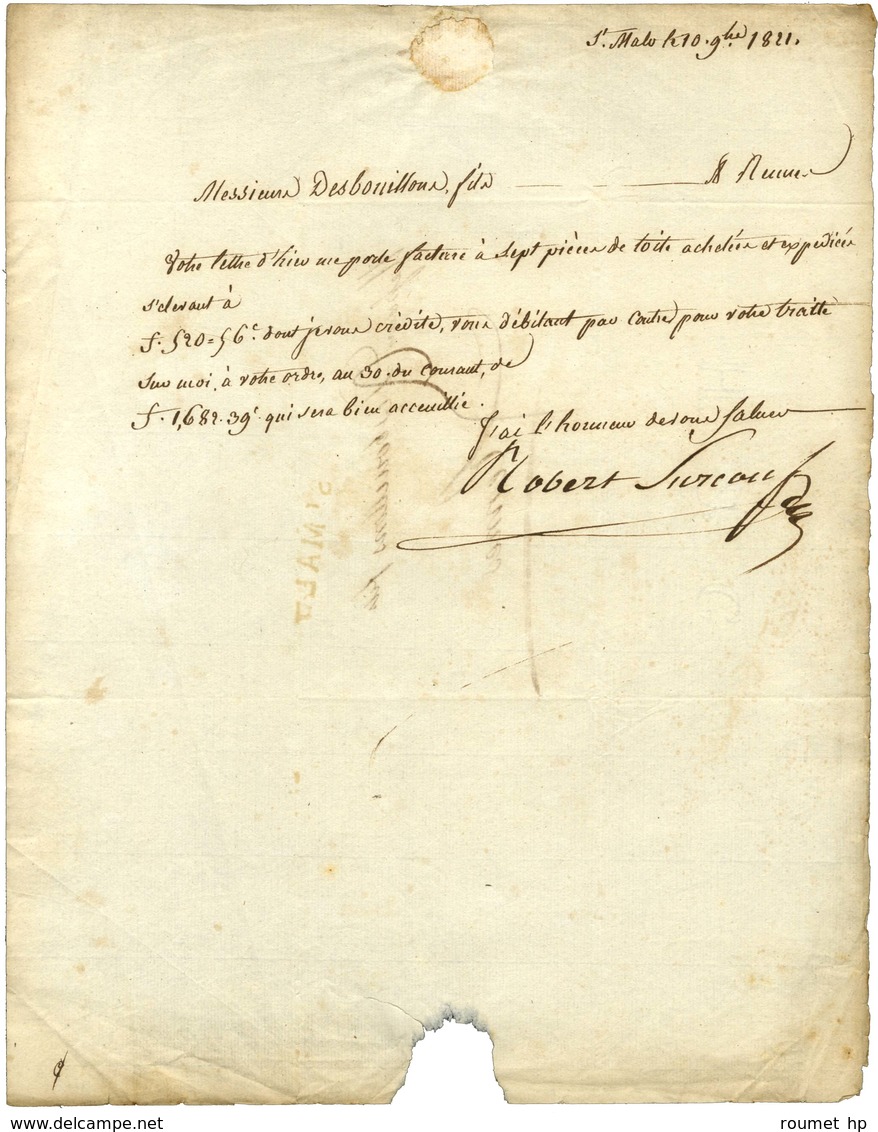 St. Malo le 10. 9bre 1821.
Messieurs Desbouillons, fils ———— A Rennes
Votre lettre d'hier me porte facture à sept pièces de toile achetées et expédiées
s'elevant à
f. 520=56c. dont je vous crédite, vous débitant par contre, pour votre traitte
sur moi, à votre ordre, au 30. du Courant, de
f. 1,682.39c. qui sera bien acceuillie.
J'ai l'honneur de vous saluer
Robert Surcouf
ST MALO
roumet hp